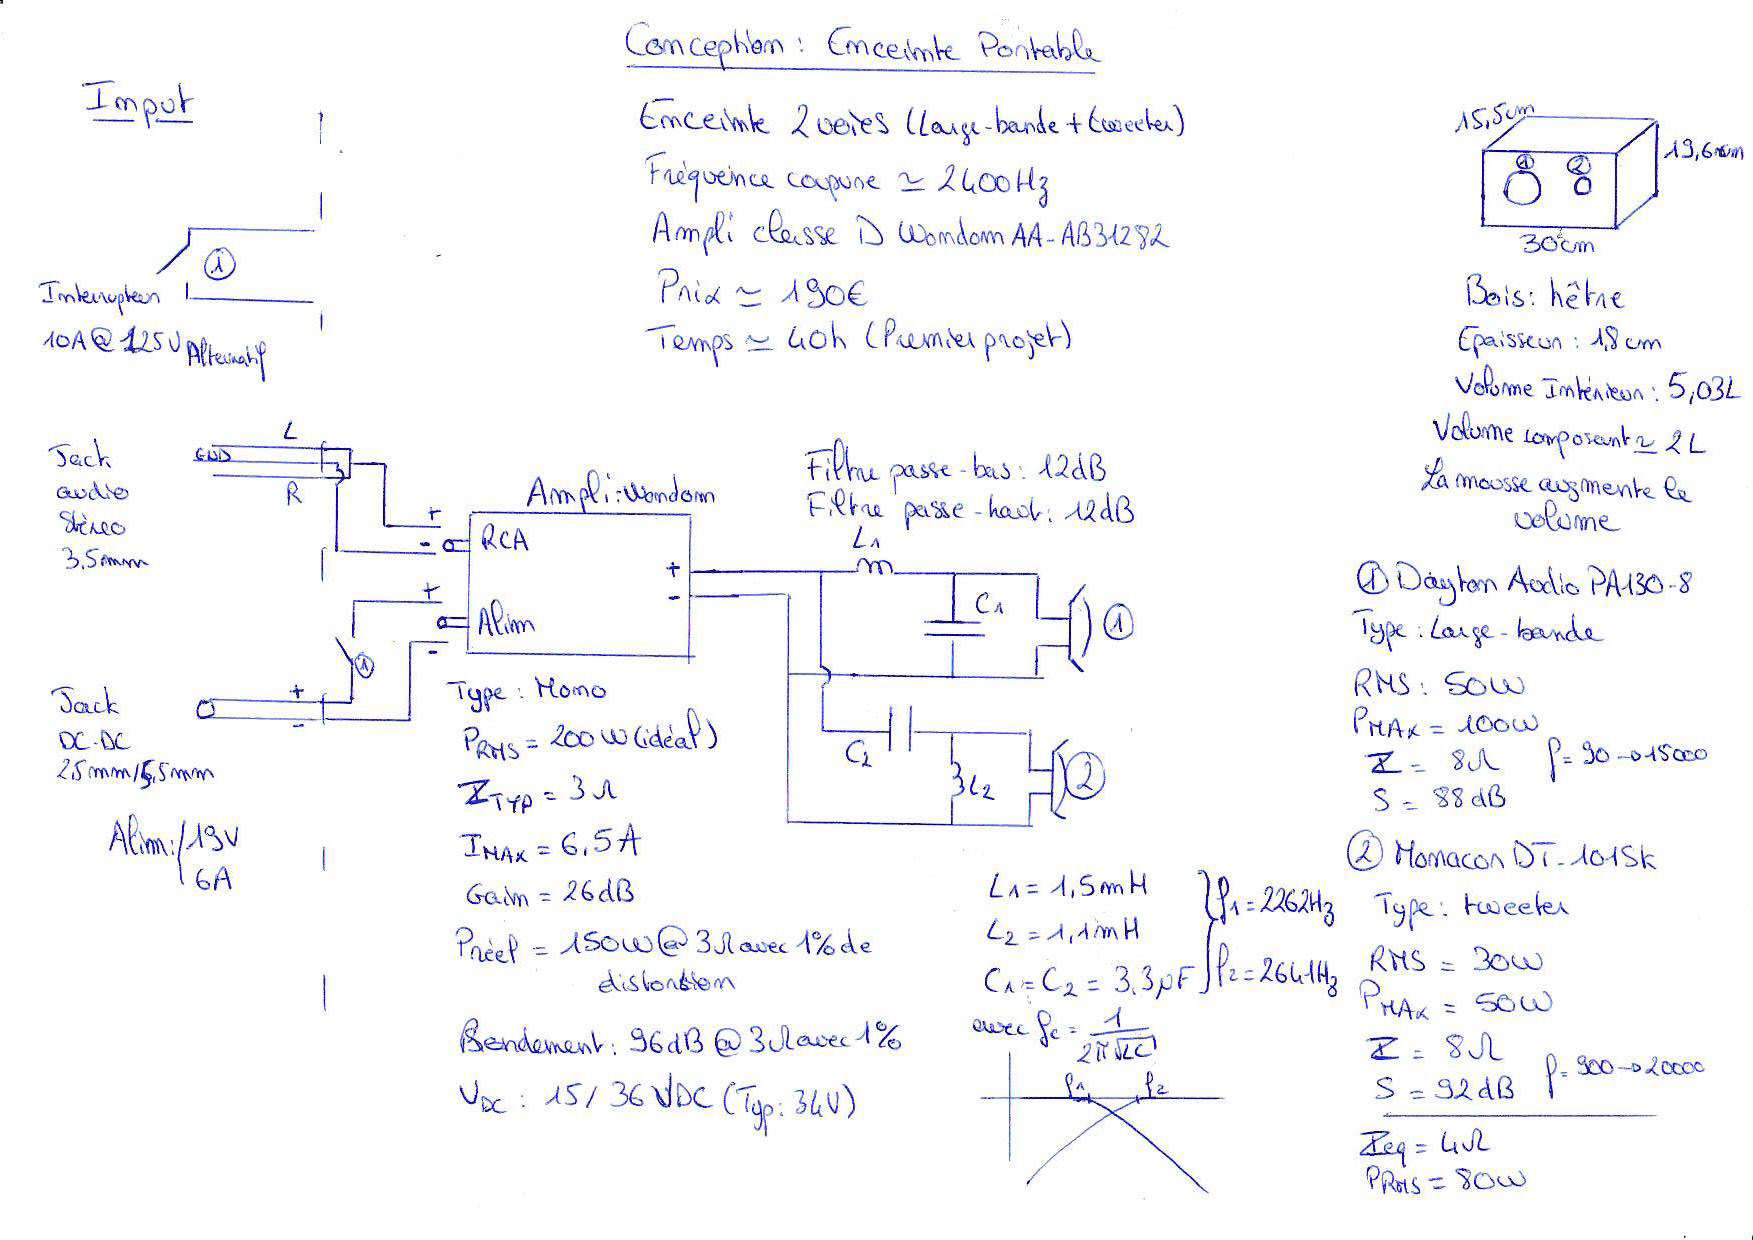 Conception : Enceinte Portable
Input
Enceinte 2 voies (Large-bande + tweeter)
Fréquence coupure ≃ 2400Hz
Ampli classe D Wondom AA-AB31282
Prix ≃ 190€
Temps ≃ 40h (Premier projet)
①
Interrupteur
10A @ 125V Alternatif
15,5cm
19,6cm
① ②
30cm
Bois : hêtre
Epaisseur : 1,8 cm
Volume Intérieur : 5,03L
Volume composant ≃ 2L
La mousse augmente le
volume
Jack
audio
Stéreo
3,5mm
L
GND
R
Ampli : Wondom
+
-
RCA
+
-
Alim
+
-
①
Jack
DC-DC
2,5mm/5,5mm
+
-
Alim : 19V
6A
Filtre passe-bas : 12dB
Filtre passe-haut : 12dB
L1
C1
①
C2
L2
②
Type : Mono
PRMS = 200W (idéal)
ZTYP = 3Ω
IMAX = 6,5A
Gain = 26dB
Préel = 150W @ 3Ω avec 1% de
distorstion
Rendement : 96dB @ 3Ω avec 1%
VDC : 15 / 36 VDC (Typ : 34V)
L1 = 1,5mH
L2 = 1,1mH
C1 = C2 = 3,3µF
f1 = 2262Hz
f2 = 2641Hz
avec fc = 1 / 2π√LC
f1 f2
① Dayton Audio PA130-8
Type : Large-bande
RMS : 50W
PMAX = 100W
Z = 8Ω f = 90→15000
S = 88dB
② Monacor DT-101SK
Type : tweeter
RMS = 30W
PMAX = 50W
Z = 8Ω f = 900→20000
S = 92dB
Zeq = 4Ω
PRMS = 80W